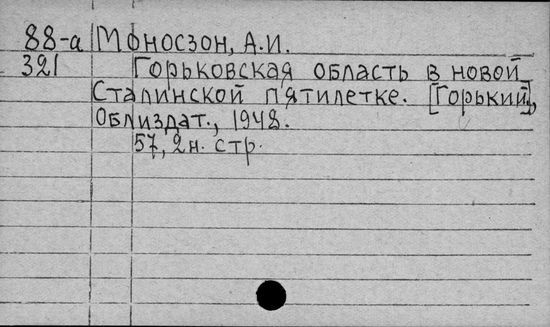 88-а Моносзон, А.И.
321 Горьковская область в новой
Сталинской пятилетке. [Горький],
Облиздат., 1948.
57, 2н. стр.